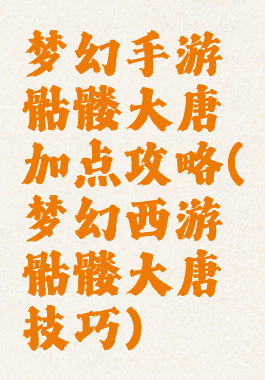 梦幻手游
骷髅大唐
加点攻略(
梦幻西游
骷髅大唐
技巧)